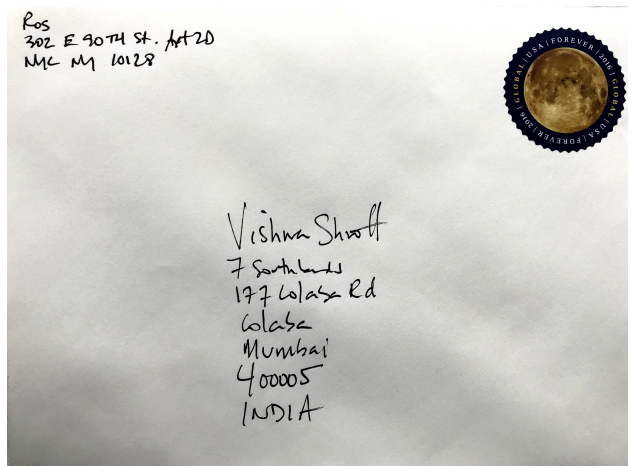 Ros
302 E 90TH St. Apt 2D
NYC NY 10128
GLOBAL | USA | FOREVER | 2016 | GLOBAL | USA | FOREVER | 2016 |
Vishwa Shroff
7 Southlands
177 Colaba Rd
Colaba
Mumbai
400005
INDIA